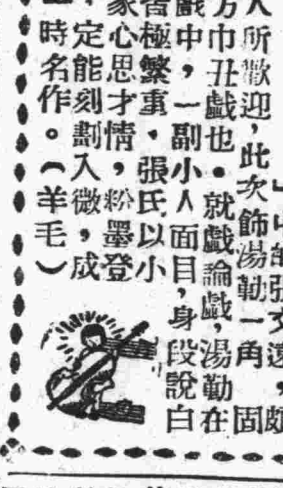 中的張文遠，頗
人所歡迎，此次飾湯勤一角，固
方巾丑戲也。就戲論戲，湯勤在
戲中，一副小人面目，身段說白
皆極繁重，張氏以小
家心思才情，粉墨登
，定能刻劃入微，成
一時名作。（羊毛）